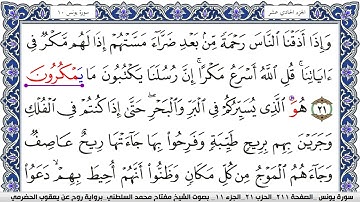 الجزء الحادي عشر
سورة يونس ١٠
وَإِذَا أَذَقْنَا النَّاسَ رَحْمَةً مِّن بَعْدِ ضَرَّاءَ مَسَّتْهُمْ إِذَا لَهُم مَّكْرٌ فِي
ءَايَاتِنَا قُلِ اللَّهُ أَسْرَعُ مَكْرًا إِنَّ رُسُلَنَا يَكْتُبُونَ مَا يَمْكُرُونَ
٢١ هُوَ الَّذِي يُسَيِّرُكُمْ فِي الْبَرِّ وَالْبَحْرِ حَتَّى إِذَا كُنتُمْ فِي الْفُلْكِ
وَجَرَيْنَ بِهِم بِرِيحٍ طَيِّبَةٍ وَفَرِحُوا بِهَا جَاءَتْهَا رِيحٌ عَاصِفٌ
وَجَاءَهُمُ الْمَوْجُ مِن كُلِّ مَكَانٍ وَظَنُّوا أَنَّهُمْ أُحِيطَ بِهِمْ دَعَوُا
سورة يونس - الصفحة ٢١١ - الحزب ٢١ - الجزء ١١ - بصوت الشيخ مفتاح محمد السلطني - برواية روح عن يعقوب الحضرمي